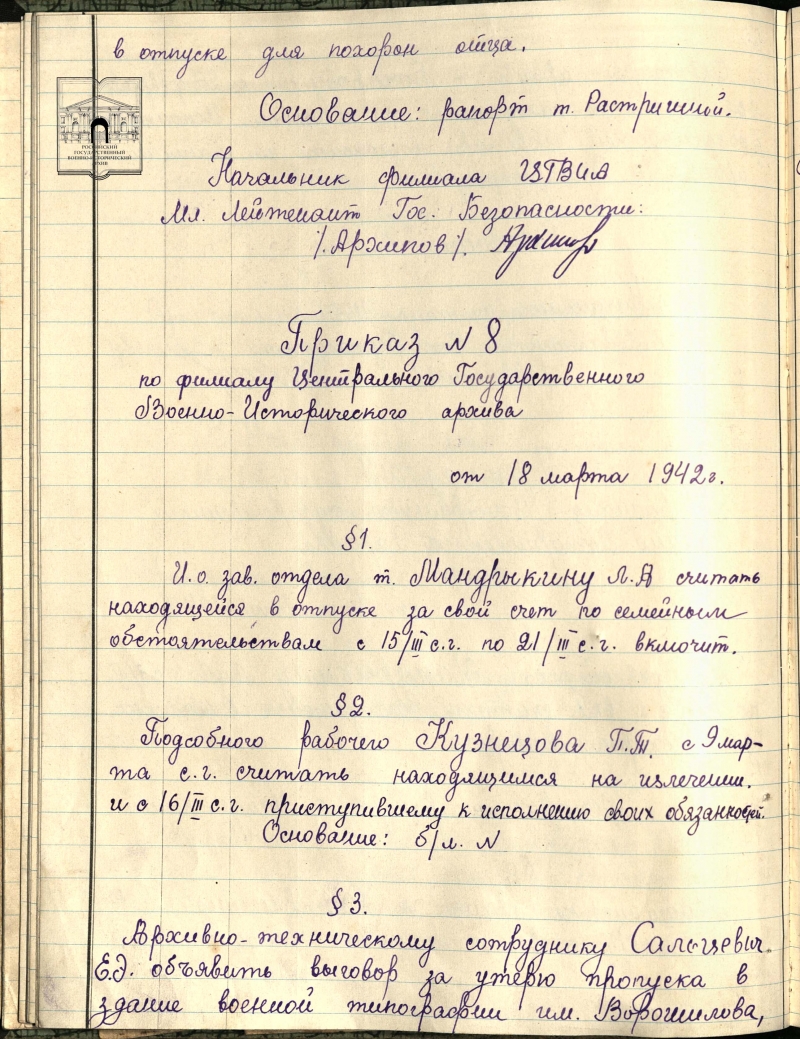 в отпуске для похорон отца.
Основание: рапорт т. Растригиной.
РОССИЙСКИЙ
ГОСУДАРСТВЕННЫЙ
ВОЕННО-ИСТОРИЧЕСКИЙ
АРХИВ
Начальник филиала ЦГВИА
Мл. Лейтенант Гос. Безопасности:
/.Архипов/.
Приказ N 8
по филиалу Центрального Государственного
Военно-Исторического архива
от 18 марта 1942 г.
§1.
И.о. зав. отдела т. Мандрыкину Л.А считать
находящейся в отпуске за свой счет по семейным
обстоятельствам с 15/III с.г. по 21/III с.г. включит.
§2.
Подсобного рабочего Кузнецова П.Т. с 9 мар-
та с.г. считать находящимся на излечении.
и с 16/III с.г. приступившему к исполнению своих обязанностей.
Основание: б/л. N
§3.
Архивно-техническому сотруднику
Е.Э. объявить выговор за утерю пропуска в
здание военной типографии им. Ворошилова,